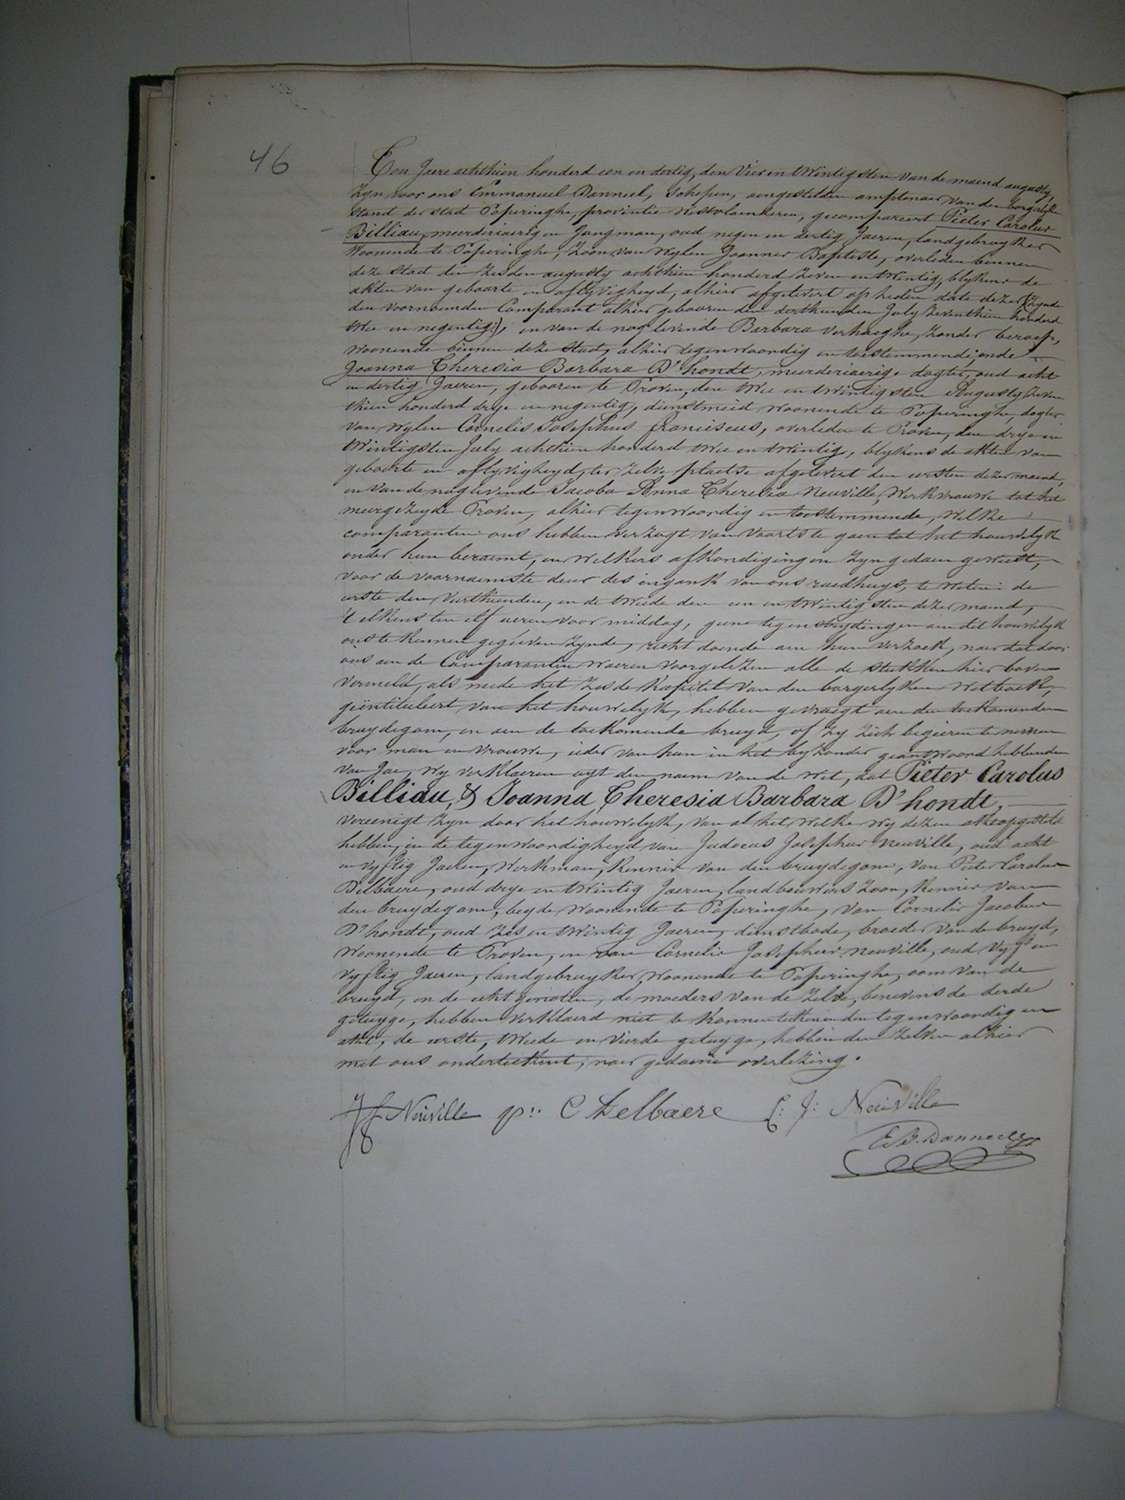 46
Ten Jaere achthien honderd een en dertig, den Vier en twintigsten van de maend augusty
Zyn voor ons Emmanuel Donneel, Schepen, aengestelden amptenaer van den borgerlyken
stand der stad Poperinghe, provintie Westvlaenderen, gecompareert Pieter Carolus
Billiau, meerderiaerigen Jongman, oud negen en dertig Jaeren, landgebruyker
Woonende te Poperinghe, Zoon van Wylen Joannes Baptiste, overleden binnen
deze stad den Zesden augusty achthien honderd Zeven en twintig, blykens de
akten van geboorte en aflyvigheyd, alhier afgelevert op heden date dezer (Zynde
den voornoemden Comparant alhier gebooren den derthienden July Zeventhien honderd
twee en negentig), en van de nog levende Barbara Verhaeghe, Zonder beroep,
woonende binnen deze stad, alhier tegenwoordig en toestemmende; ende
Joanna Theresia Barbara D'hondt, meerderiaerige dogter, oud acht
en dertig Jaeren, gebooren te Proven, den twee en twintigsten Augusty Zeven
thien honderd drye en negentig, dienstmeid woonende te Poperinghe, dogter
van Wylen Cornelis Josephus franciscus, overleden te Proven, den drye en
twintigsten July achthien honderd twee en twintig, blykens de akten van
geboorte en aflyvigheyd, ter Zelve plaetse afgelevert den eersten dezer maend,
en van de nog levende Jacoba Anna Theresia Neuville, Werkvrouwe tot het
meergezeyde Proven, alhier tegenwoordig en toestemmende, Welke
comparanten ons hebben verzogt van Voorts te gaen tot het houwelyk
onder hun beraemt, en Welkers afkondigingen Zyn gedaen geweest,
voor de voornaemste deur des ingank van ons raedhuys, te Weten: de
eerste den Veerthienden, en de twede den een en twintigsten dezer maend,
't elkens ten elf ueren voor middag, geene tegenstrydingen aen dit houwelyk
ons te kennen gegeeven Zynde, recht doende aen hun verzoek, naer dat door
ons aen de Comparanten waeren voorgelezen alle de stukken hier boven
vermeld, als mede het Zesde kapittel van den borgerlyken Wetboek,
geintituleert van het houwelyk, hebben gevraegt aen den toekomenden
bruydegom, en aen de toekomende bruyd, of Zy Zich begieren te nemen
voor man en vrouwe, ieder van hun in het byzonder geantwoord hebbende
van Jae, Wy verklaeren uyt den naem van de Wet, dat Pieter Carolus
Billiau, & Joanna Theresia Barbara D'hondt,
vereenigt Zyn door het houwelyk, van al het welke Wy dezen akte opgesteld
hebben, in de tegenwoordigheyd van Judocus Josephus Neuville, oud acht
en vyftig Jaeren, Werkman, Kennis van den bruydegom, van Pieter Carolus
Delbaere, oud drye en twintig Jaeren, landbouwers Zoon, Kennis van
den bruydegom, beyde Woonende te Poperinghe, van Cornelis Jacobus
D'hondt, oud Zes en twintig Jaeren, dienstbode, broeder van de bruyd,
woonende te Proven, en van Cornelis Josephus Neuville, oud vyf en
vyftig Jaeren, landgebruyker, woonende te Poperinghe, oom van de
bruyd, en de echtgenoten, de moeders van de Zelve, benevens de derde
getuyge, hebben verklaerd niet te konnen teekenen den tegenwoordigen
akte, de eerste, twede en vierde getuyge, hebben den Zelven alhier
met ons onderteekent, naer gedaene overlezing.
J J Neuville p:r C Delbaere C: J: Neuville
E. B. Donneel